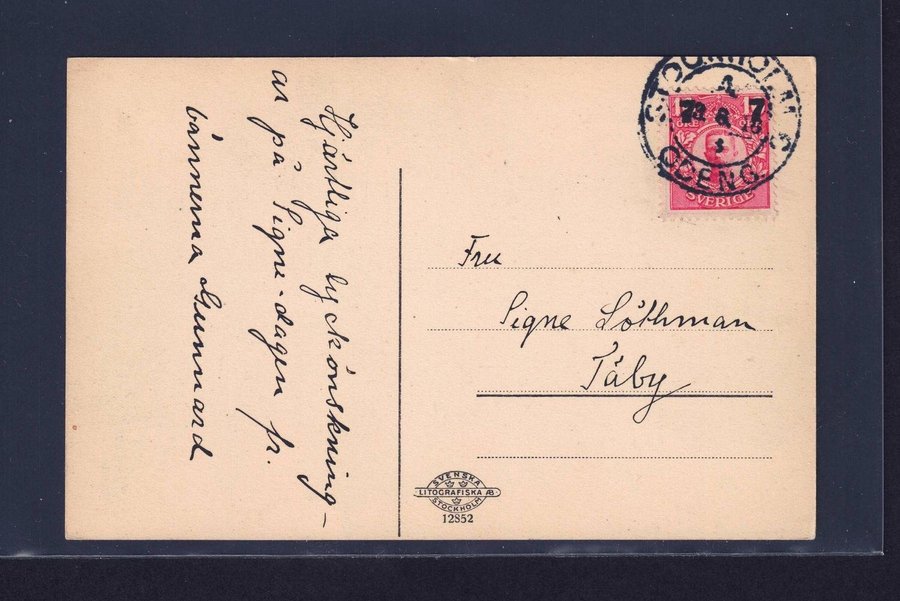 Hjärtliga lyckönskning-
ar på Signe-dagen fr.
vännerna Gunnard
STOCKHOLM
ODENG.
7
7
ÖRE
SVERIGE
Fru
Signe Löthman
Täby
SVENSKA
LITOGRAFISKA AB
STOCKHOLM
12852